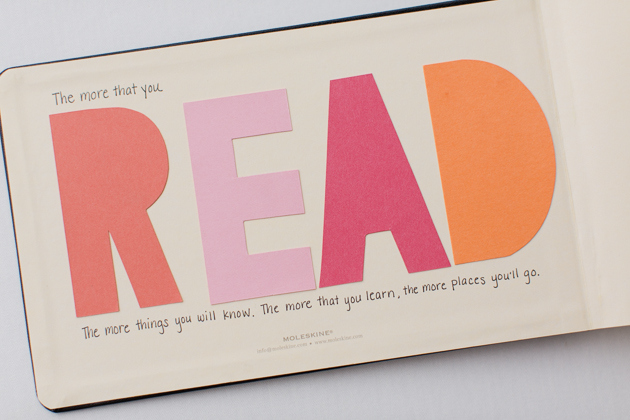 The more that you
READ
The more things you will know. The more that you learn, the more places you'll go.
MOLESKINE®